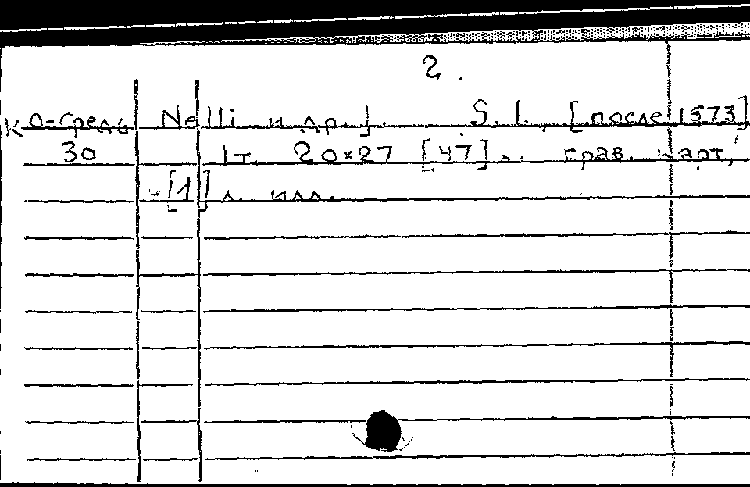 2.
Ко-Средь Nelli и др.]. S. l., [после 1573]
30 1т. 20×27 [47] л. грав. карт,
[1] л. илл.